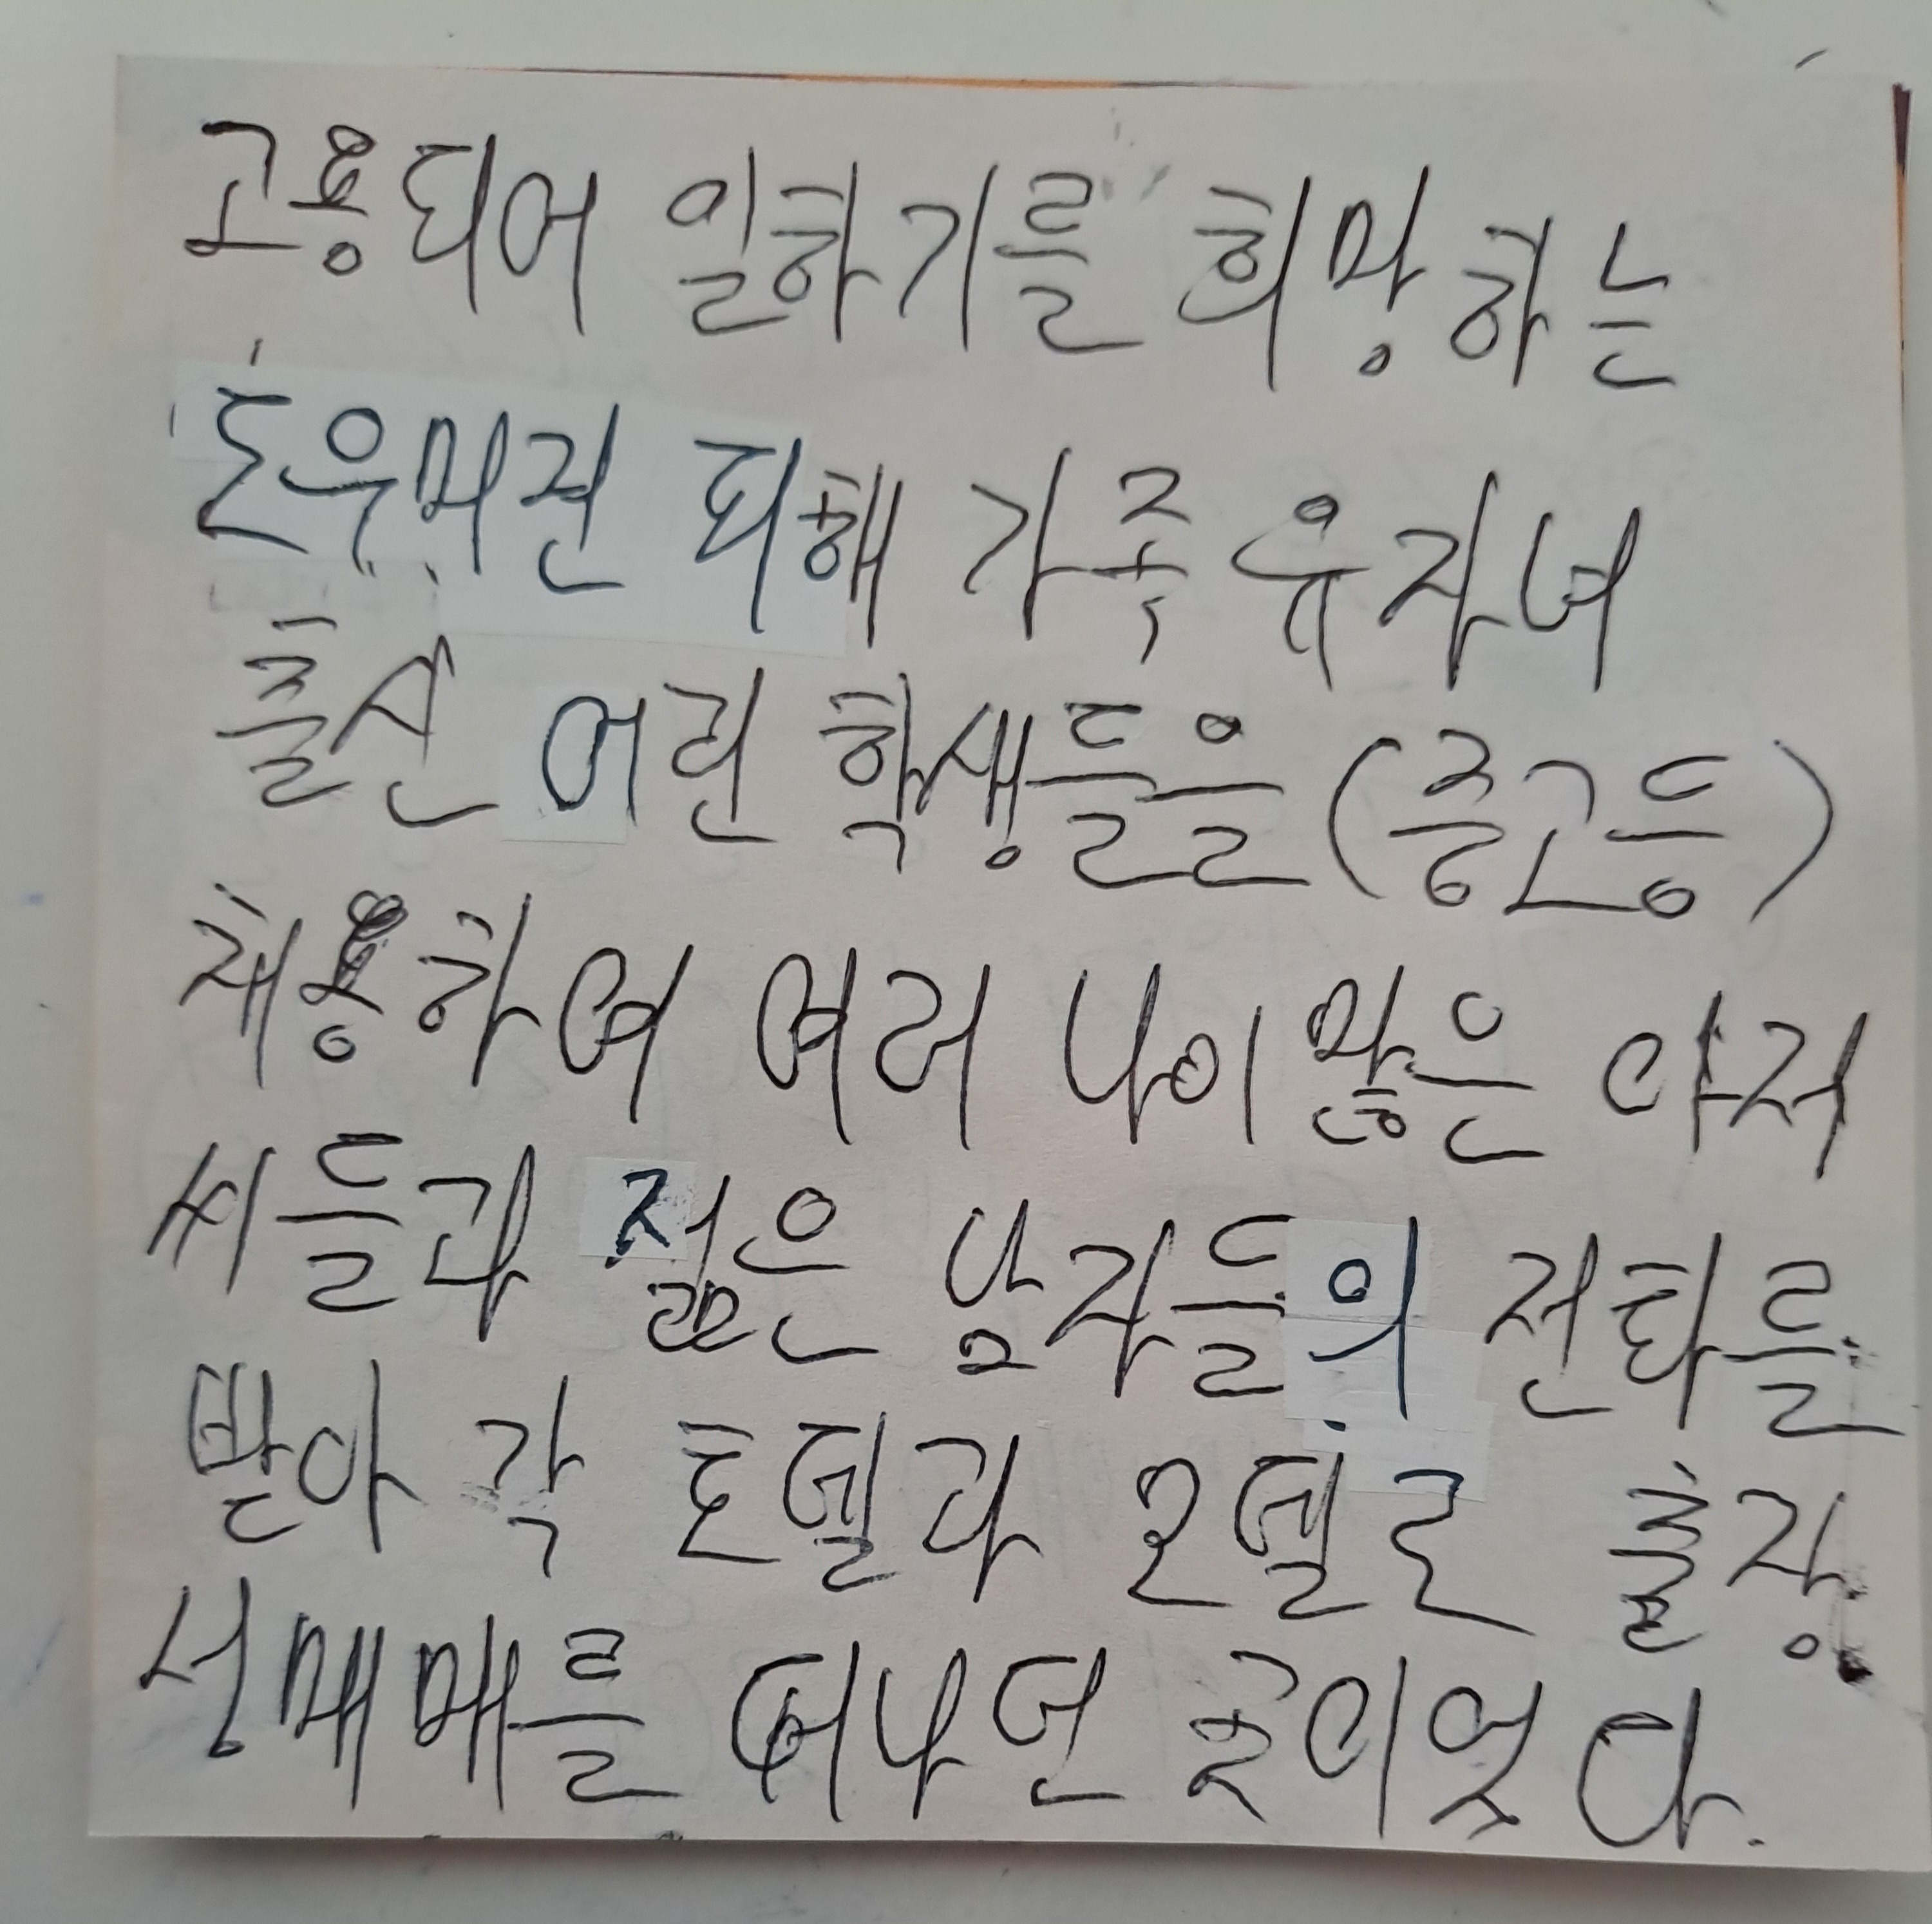 고용되어 일하기를 희망하는
도우미권 피해 가족 유자녀
출신 어린 학생들을 (중고등)
채용하여 여러 나이 많은 아저
씨들과 젊은 남자들의 전화를
받아 각 호텔과 모텔로 출장
성매매를 떠나던 곳이었다.